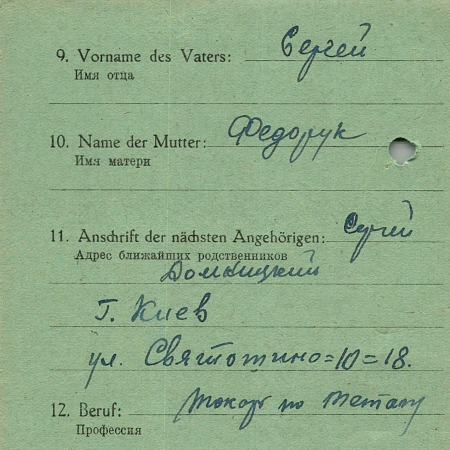 9. Vorname des Vaters: Сергей
Имя отца
10. Name der Mutter: Федорук
Имя матери
11. Anschrift der nächsten Angehörigen: Сергей
Адрес ближайших родственников
Домбицкий
г. Киев
ул. Святошино=10=18.
12. Beruf: Токарь по металу
Профессия